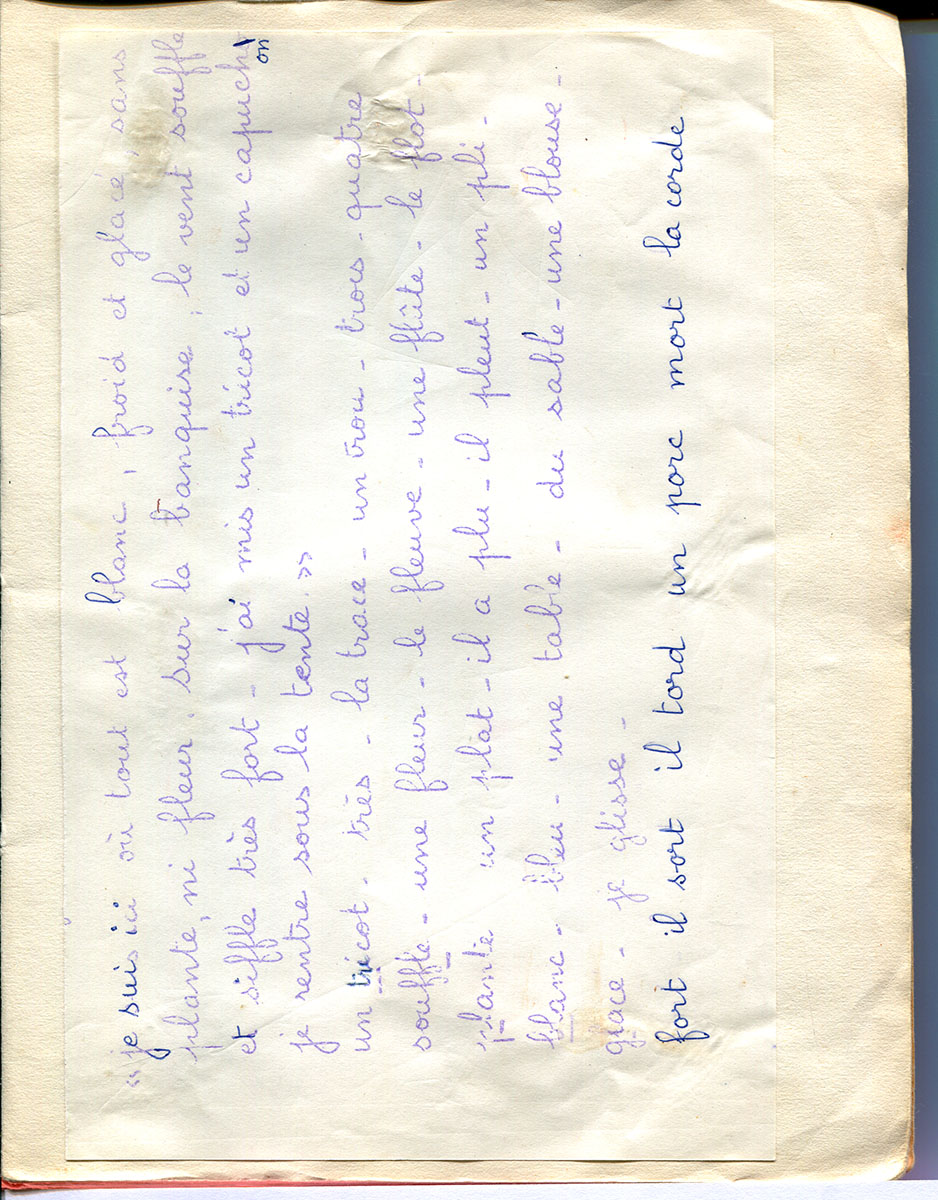 « je suis ici où tout est blanc, froid et glacé sans
plante, ni fleur. sur la banquise, le vent souffle
et siffle très fort - j'ai mis un tricot et un capuchon
je rentre sous la tente. »
un tricot. très - la trace - un trou - trois - quatre
souffle - une fleur - le fleuve - une flûte - le flot -
plante un plat - il a plu - il pleut - un pli -
blanc - bleu - une table - du sable - une blouse -
glace - je glisse -
fort il sort il tord un porc mort la corde